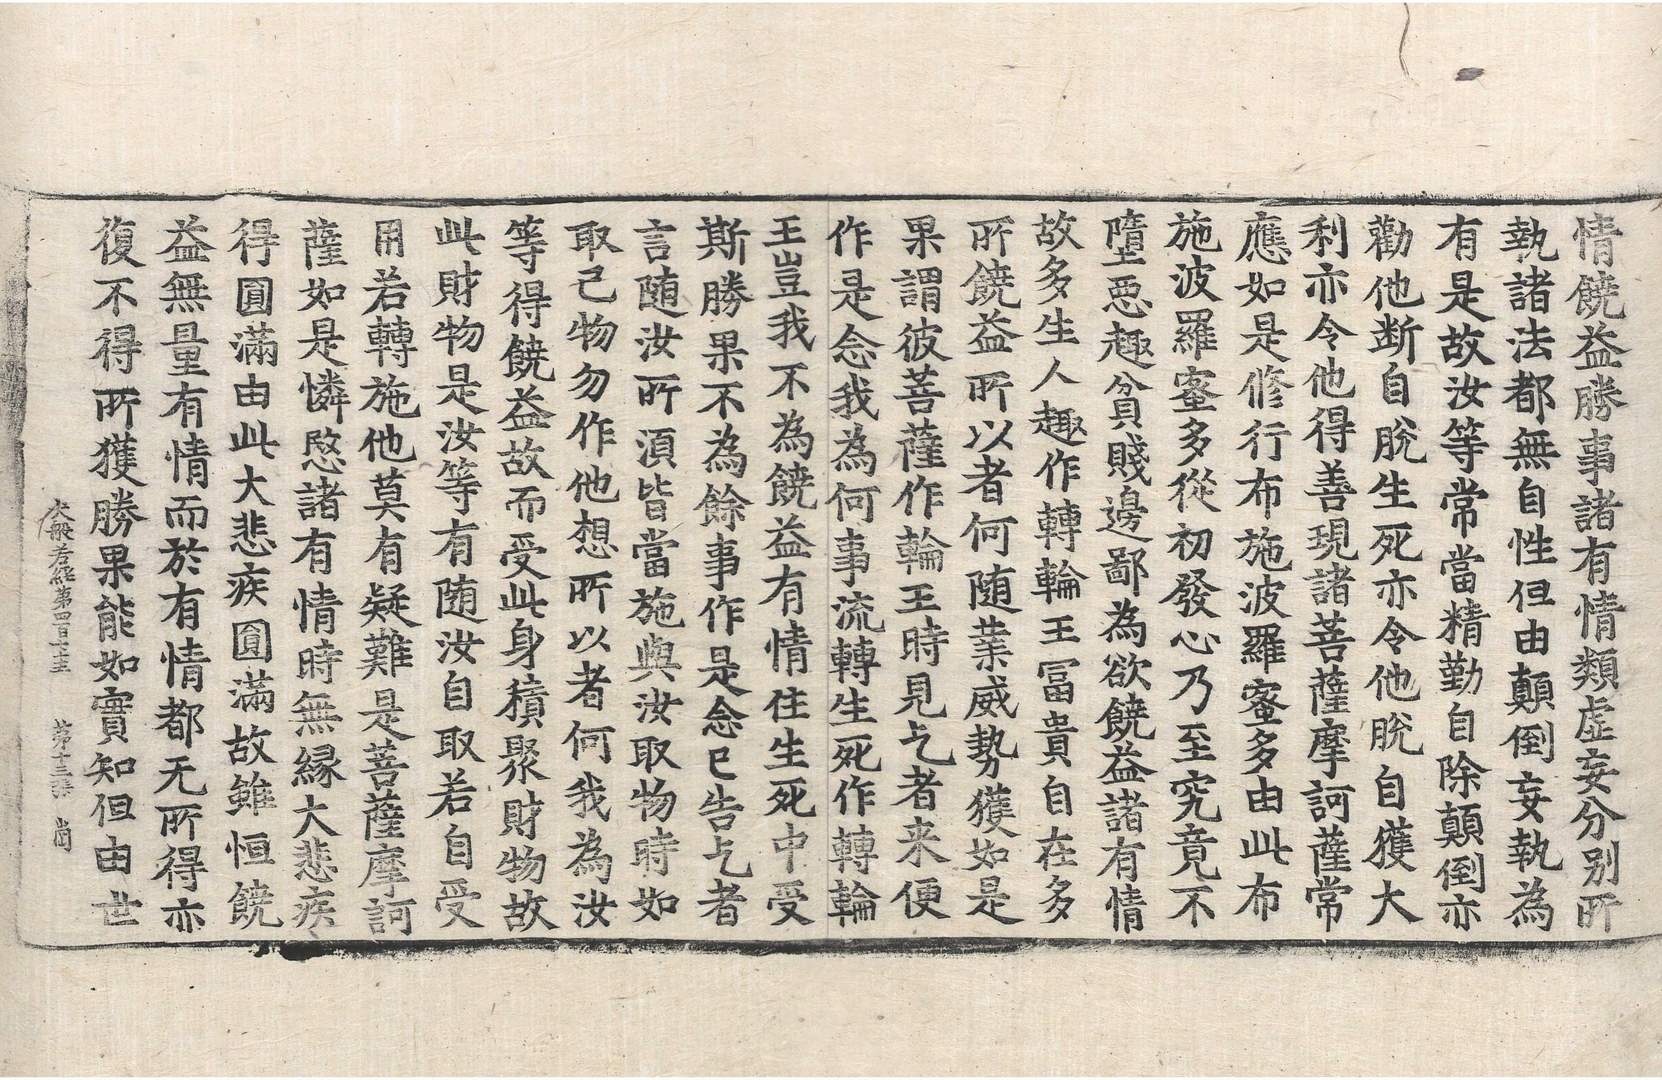 情饒益勝事諸有情類虛妄分别所
執諸法都無自性但由顛倒妄執為
有是故汝等常當精勤自除顛倒亦
勸他断自脫生死亦令他脫自獲大
利亦令他得善現諸菩薩摩訶薩常
應如是修行布施波羅蜜多由此布
施波羅蜜多從初發心乃至究竟不
墮惡趣貧賤邊鄙為欲饒益諸有情
故多生人趣作轉輪王冨貴自在多
所饒益所以者何随業威勢獲如是
果謂彼菩薩作輪王時見乞者来便
作是念我為何事流轉生死作轉輪
王豈我不為饒益有情住生死中受
斯勝果不為餘事作是念已告乞者
言随汝所湏皆當施與汝取物時如
取己物勿作他想所以者何我為汝
等得饒益故而受此身積聚財物故
此財物是汝等有随汝自取若自受
用若轉施他莫有疑難是菩薩摩訶
薩如是憐愍諸有情時無縁大悲疾
得圓滿由此大悲疾圓滿故雖恒饒
益無量有情而於有情都无所得亦
復不得所獲勝果能如實知但由世
大般若経第四百七十五 第十三張 岡